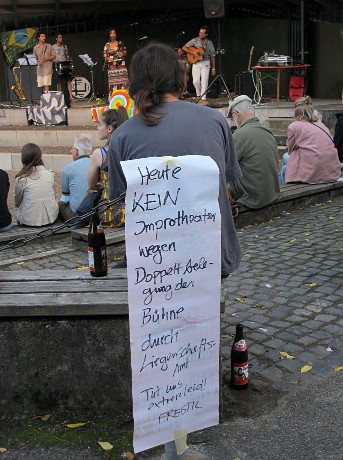 Heute
KEIN
Improtheater
wegen
Doppelbele-
gung der
Bühne
durch
Liegenschafts-
Amt
Tut uns
extrem leid!!
FREISTIL